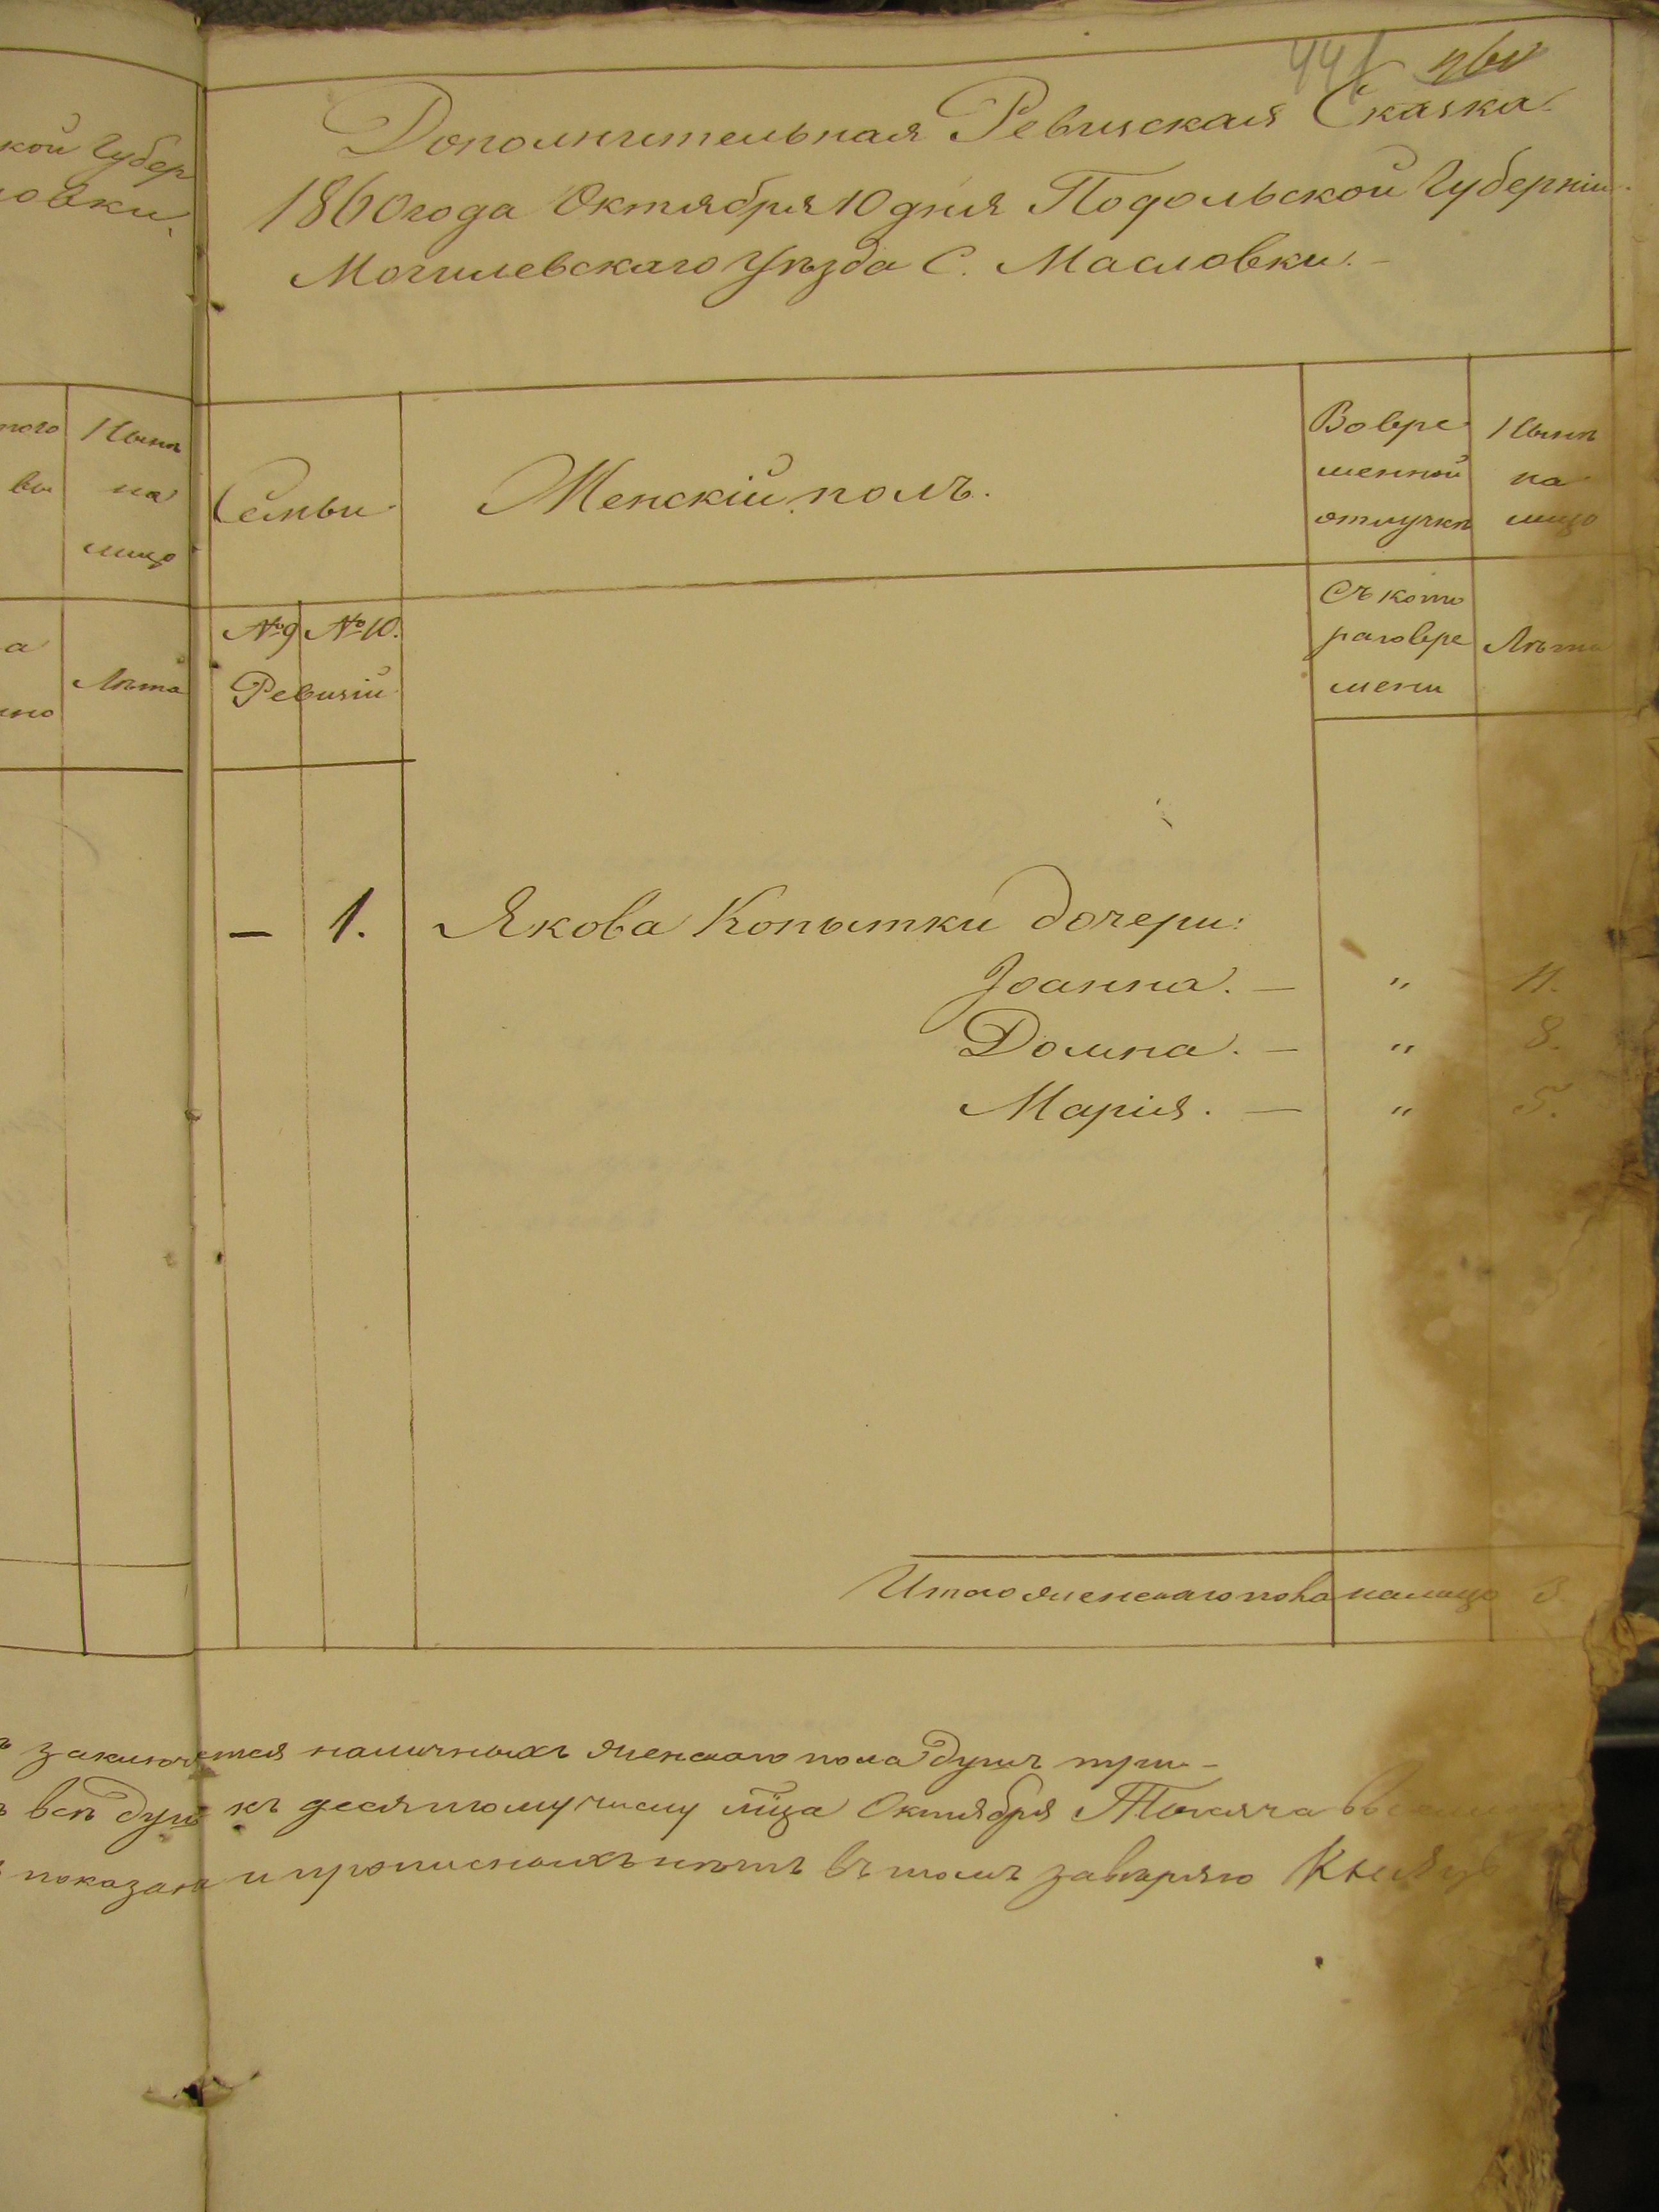 441
Дополнительная Ревизская Сказка
1860 года Октября 10 дня Подольской Губерніи
Могилевскаго Уѣзда С. Масловки.
кой Губер
овки.
Нынѣ
на
лицо
Лѣта
Семьи
Женскій полъ.
Во вре
менной
отлучкѣ
Нынѣ
на
лицо
№ 9 № 10.
Ревизій
Съ кото
раго вре
мени
Лѣта
— 1. Якова Копытки дочери:
Іоанна. — " 11.
Домна. — " 8.
Марія. — " 5.
Итого женскаго пола налицо 3
заключется наличныхъ женскаго пола душъ три —
всѣ душ къ десятому числу м͠ца Октября Тысяча
показан и прописныхъ нѣтъ въ томъ завѣряю